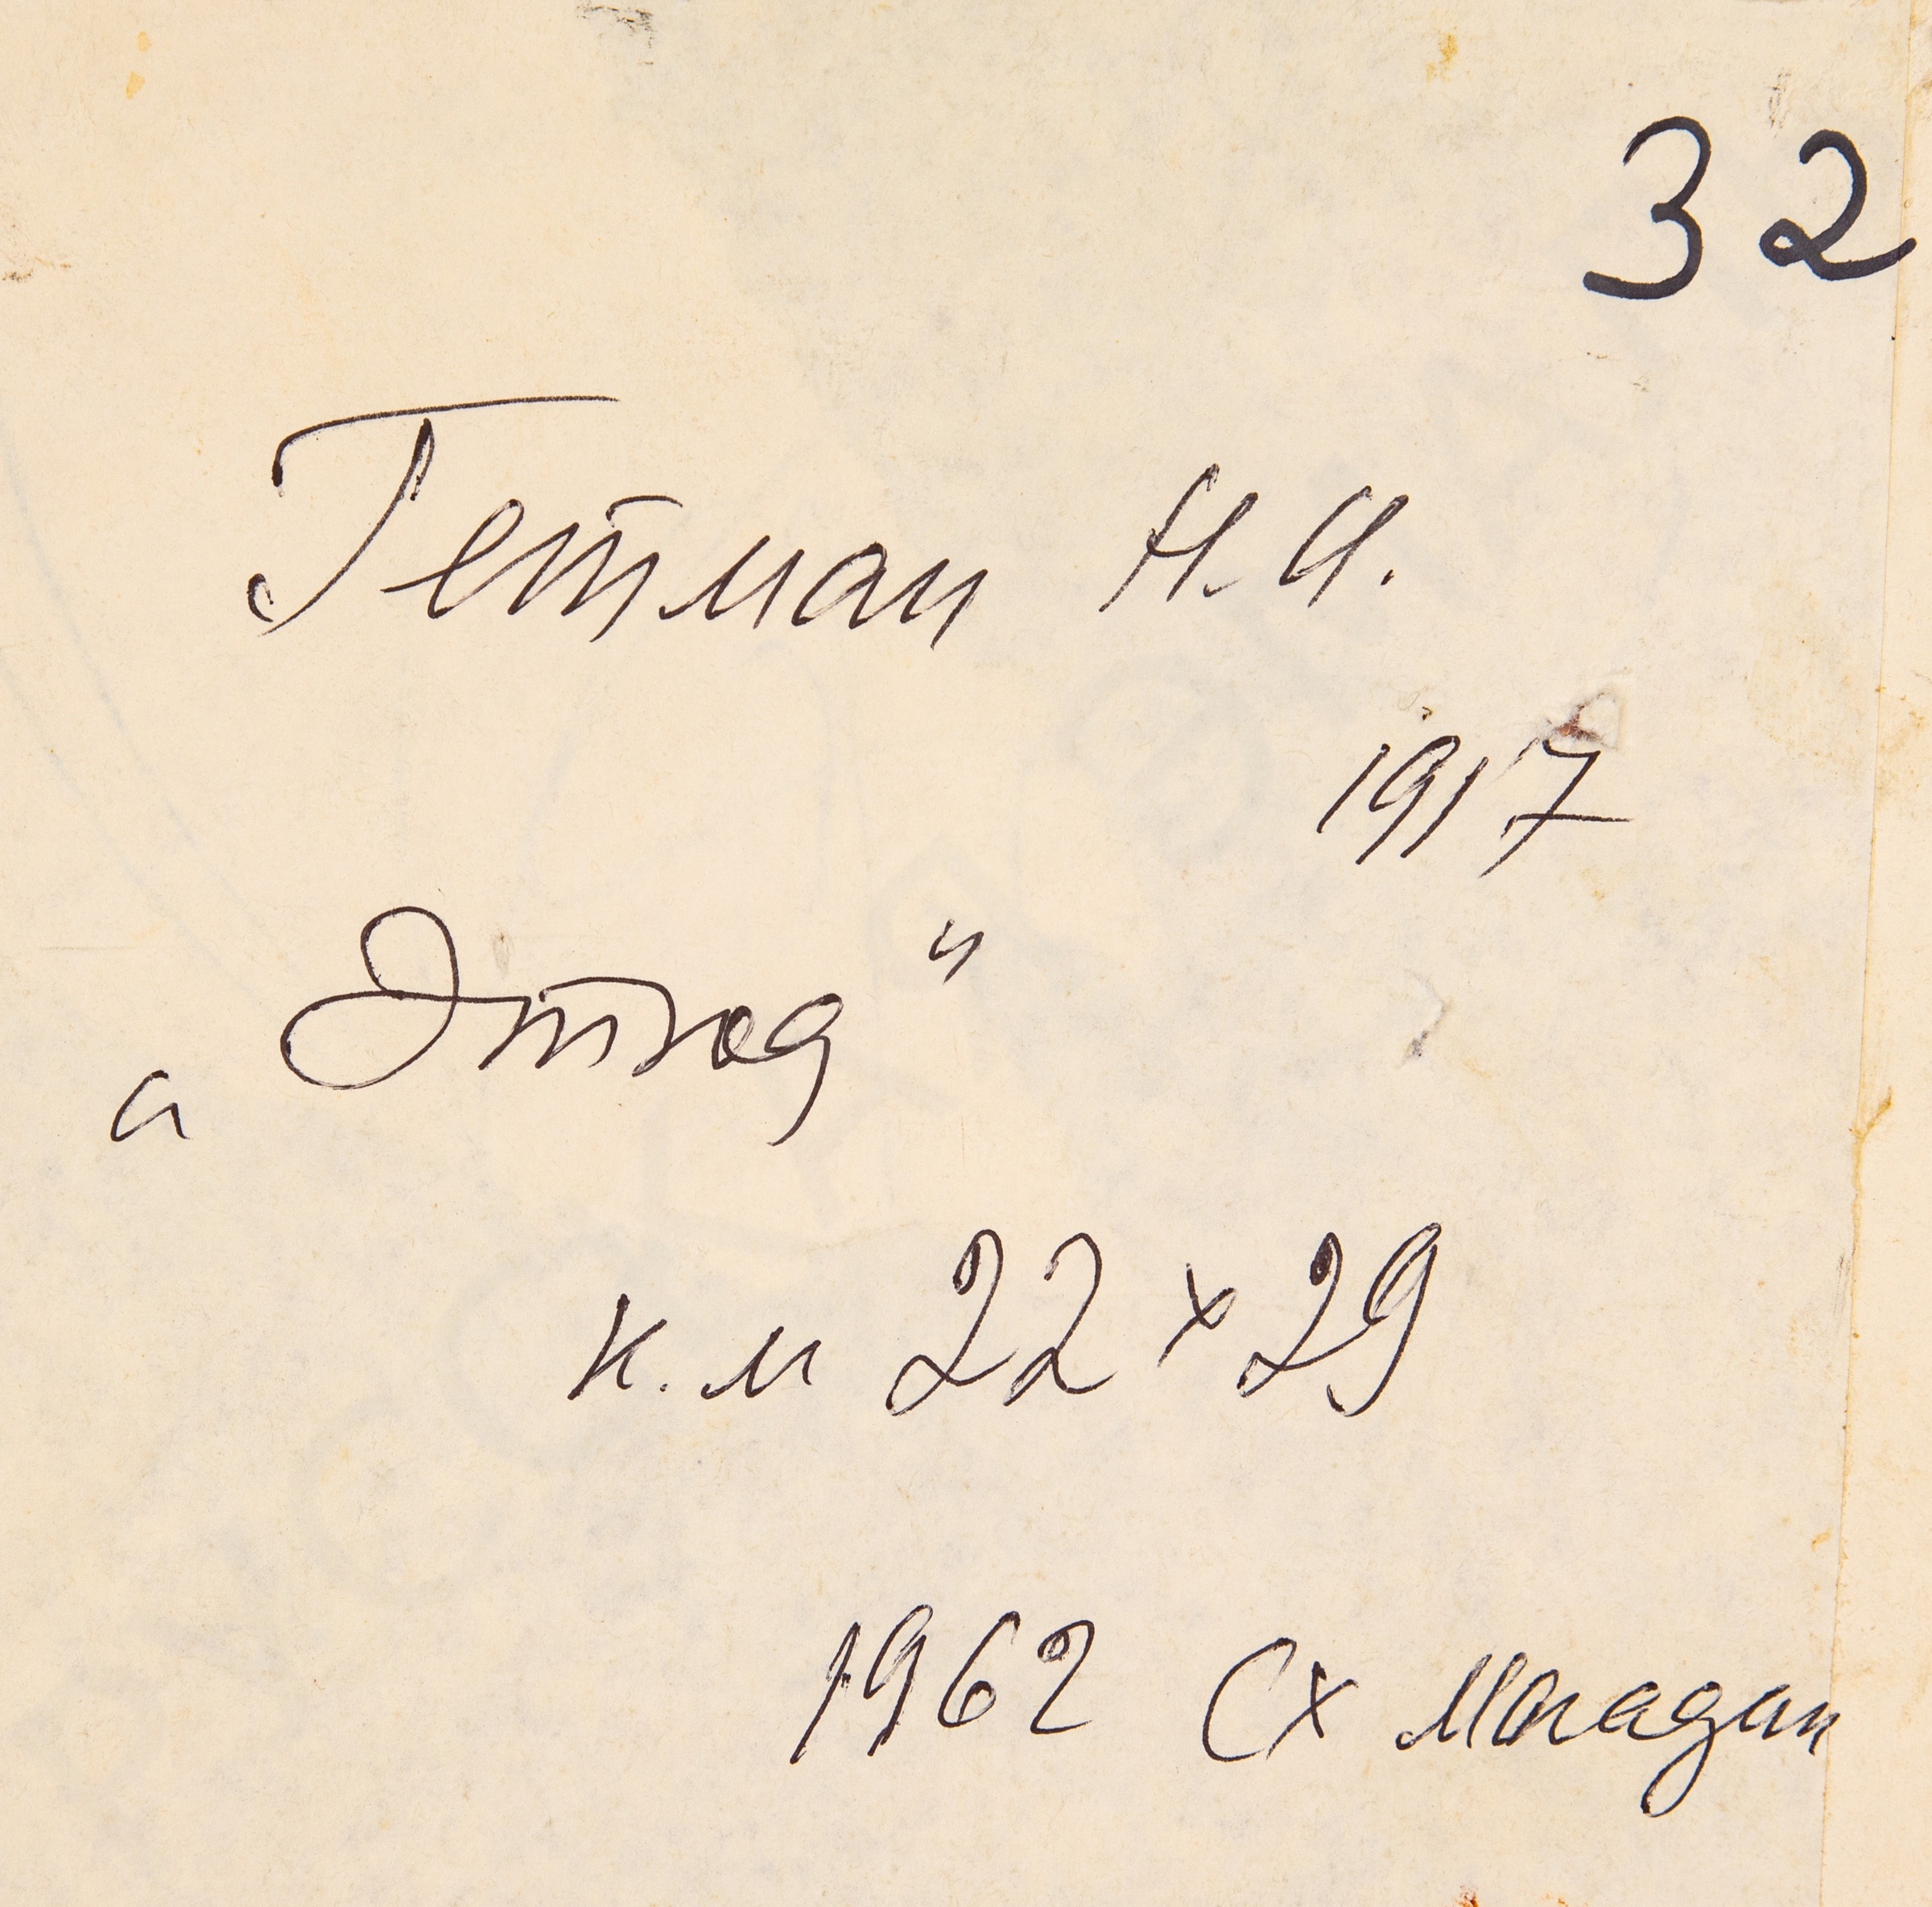 32
Гетман Н.И.
1917
„Этюд"
к.м 22 x 29
1962 Сх Магадан